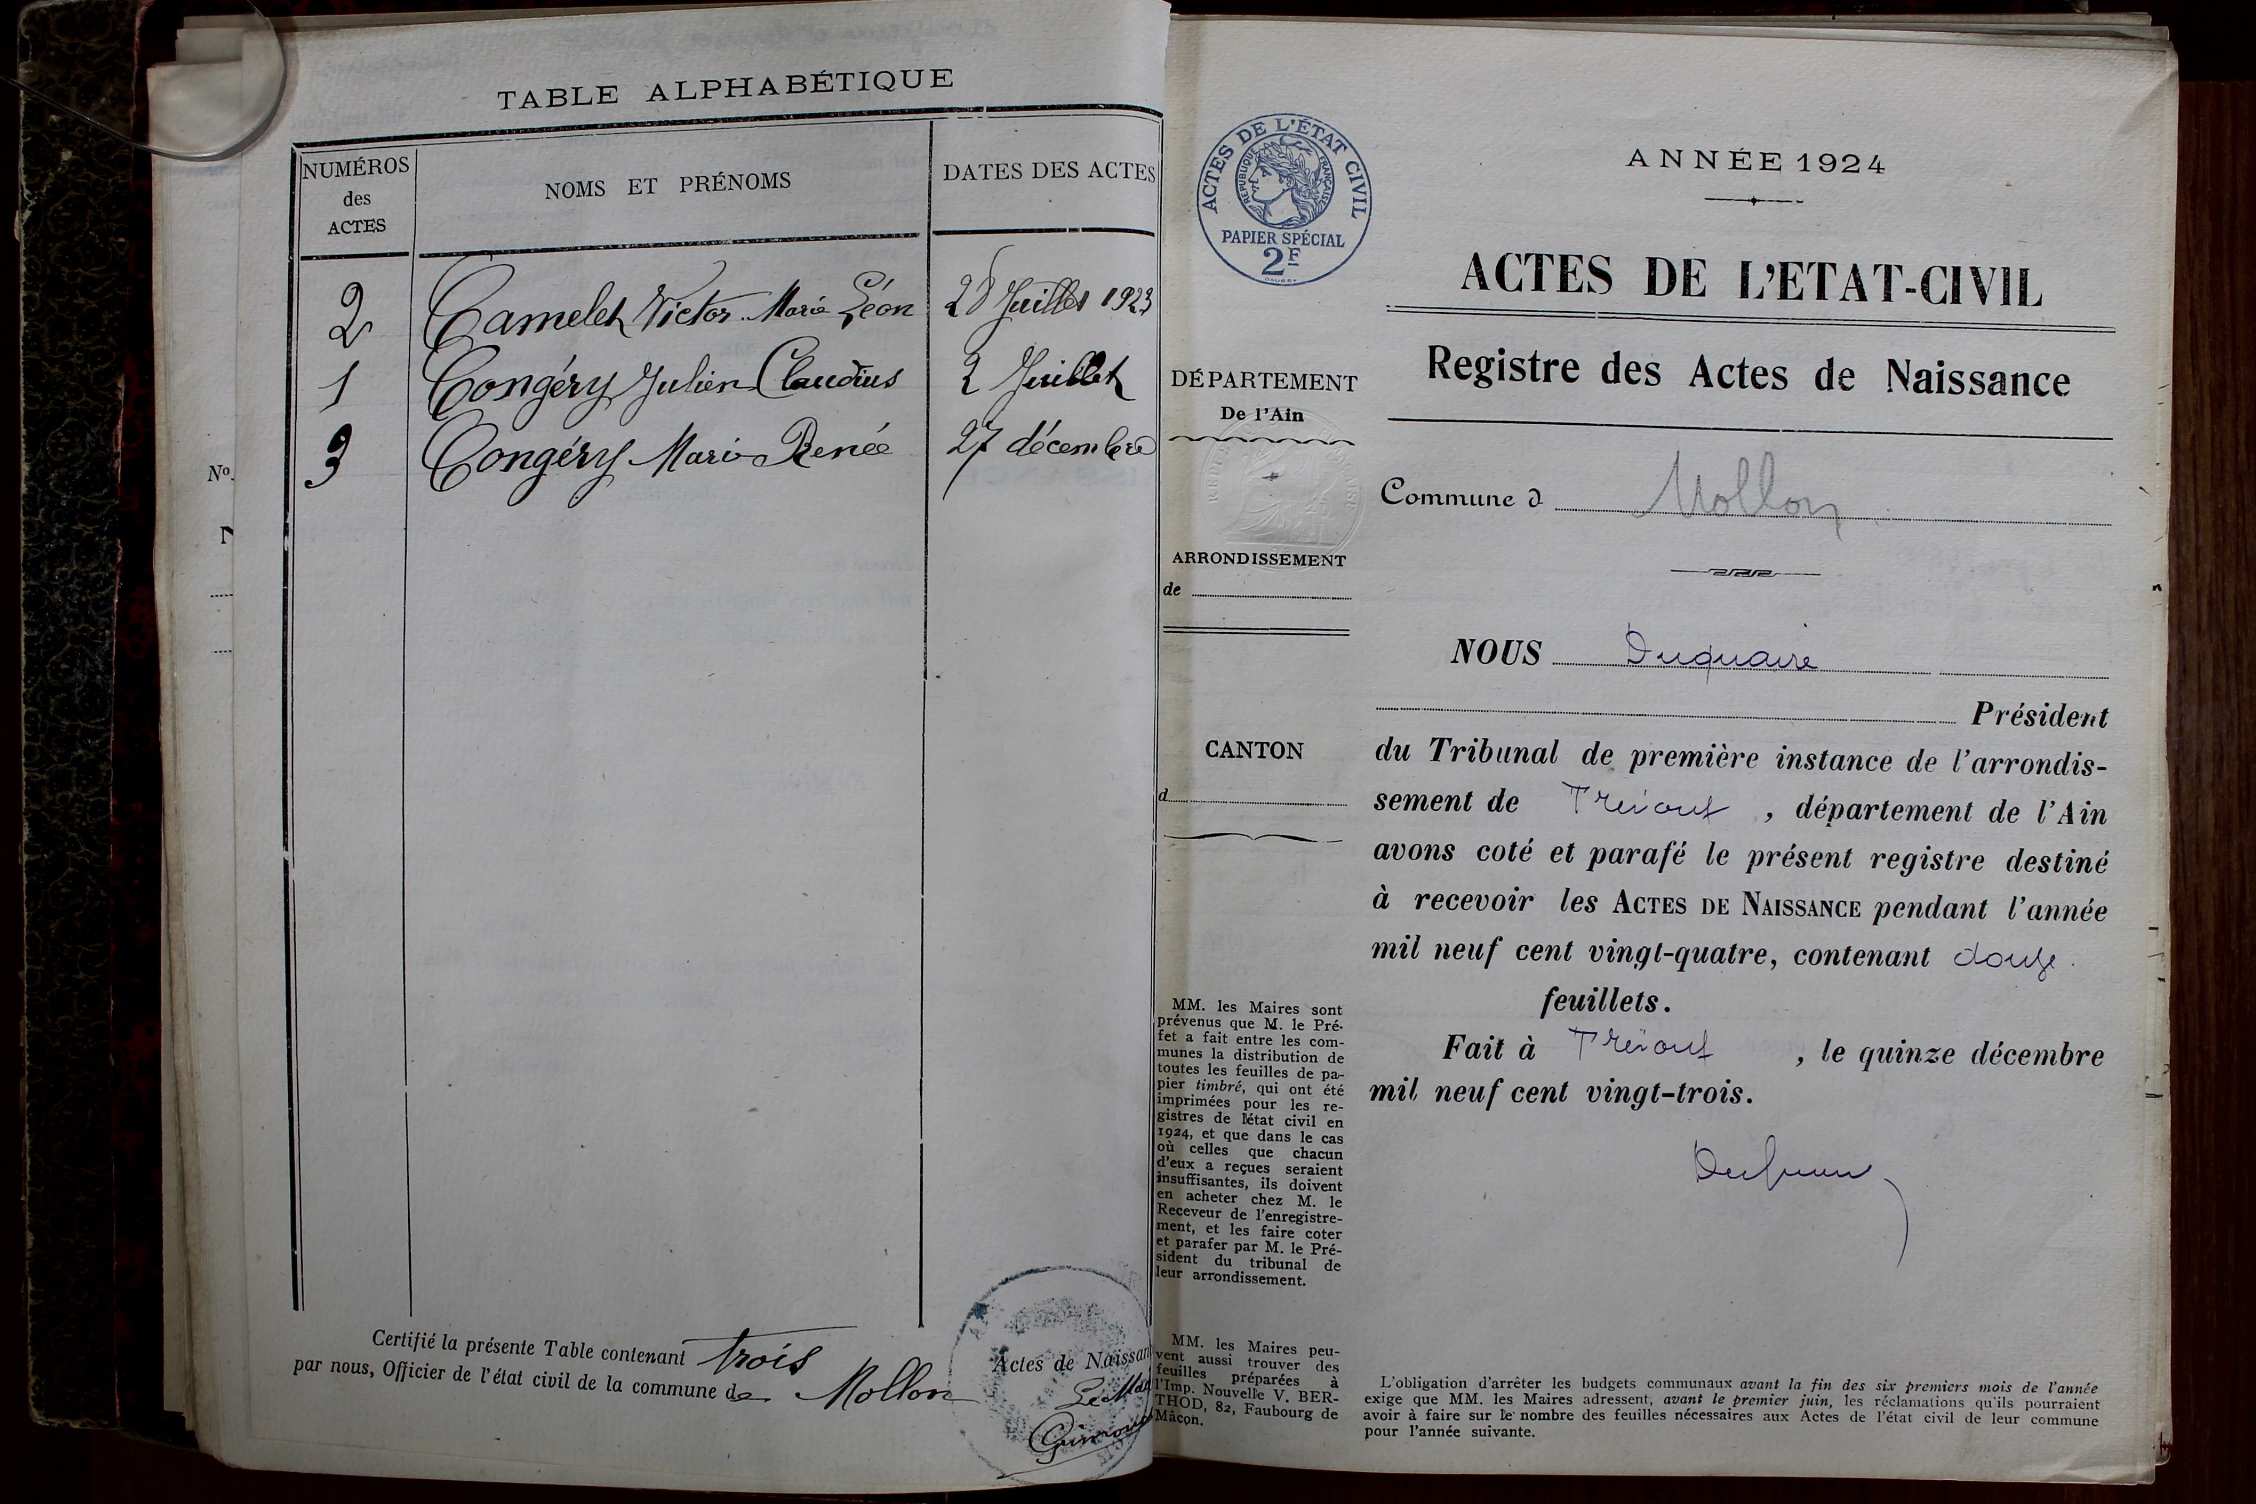 TABLE ALPHABÉTIQUE
NUMÉROS des ACTES
NOMS ET PRÉNOMS
DATES DES ACTES
2 Camelet Victor Marie Léon 28 Juillet 1923
1 Congéry Julien Claudius 2 Juillet
3 Congéry Marie Renée 27 décembre
Certifié la présente Table contenant trois Actes de Naissan
par nous, Officier de l'état civil de la commune de Mollon
Le Mai
No.
ACTES DE L'ÉTAT CIVIL
RÉPUBLIQUE FRANÇAISE
PAPIER SPÉCIAL
2F
ANNÉE 1924
ACTES DE L'ETAT-CIVIL
Registre des Actes de Naissance
DÉPARTEMENT
De l'Ain
Commune d Mollon
ARRONDISSEMENT
de
NOUS Duquaire
Président
CANTON
d
du Tribunal de première instance de l'arrondis-
sement de Trévoux, département de l'Ain
avons coté et parafé le présent registre destiné
à recevoir les ACTES DE NAISSANCE pendant l'année
mil neuf cent vingt-quatre, contenant douze
feuillets.
Fait à Trévoux, le quinze décembre
mil neuf cent vingt-trois.
MM. les Maires sont
prévenus que M. le Pré-
fet a fait entre les com-
munes la distribution de
toutes les feuilles de pa-
pier timbré, qui ont été
imprimées pour les re-
gistres de l'état civil en
1924, et que dans le cas
où celles que chacun
d'eux a reçues seraient
insuffisantes, ils doivent
en acheter chez M. le
Receveur de l'enregistre-
ment, et les faire coter
et parafer par M. le Pré-
sident du tribunal de
leur arrondissement.
MM. les Maires peu-
vent aussi trouver des
feuilles préparées à
l'Imp. Nouvelle V. BER-
THOD, 82, Faubourg de
Mâcon.
L'obligation d'arrêter les budgets communaux avant la fin des six premiers mois de l'année
exige que MM. les Maires adressent, avant le premier juin, les réclamations qu'ils pourraient
avoir à faire sur le nombre des feuilles nécessaires aux Actes de l'état civil de leur commune
pour l'année suivante.